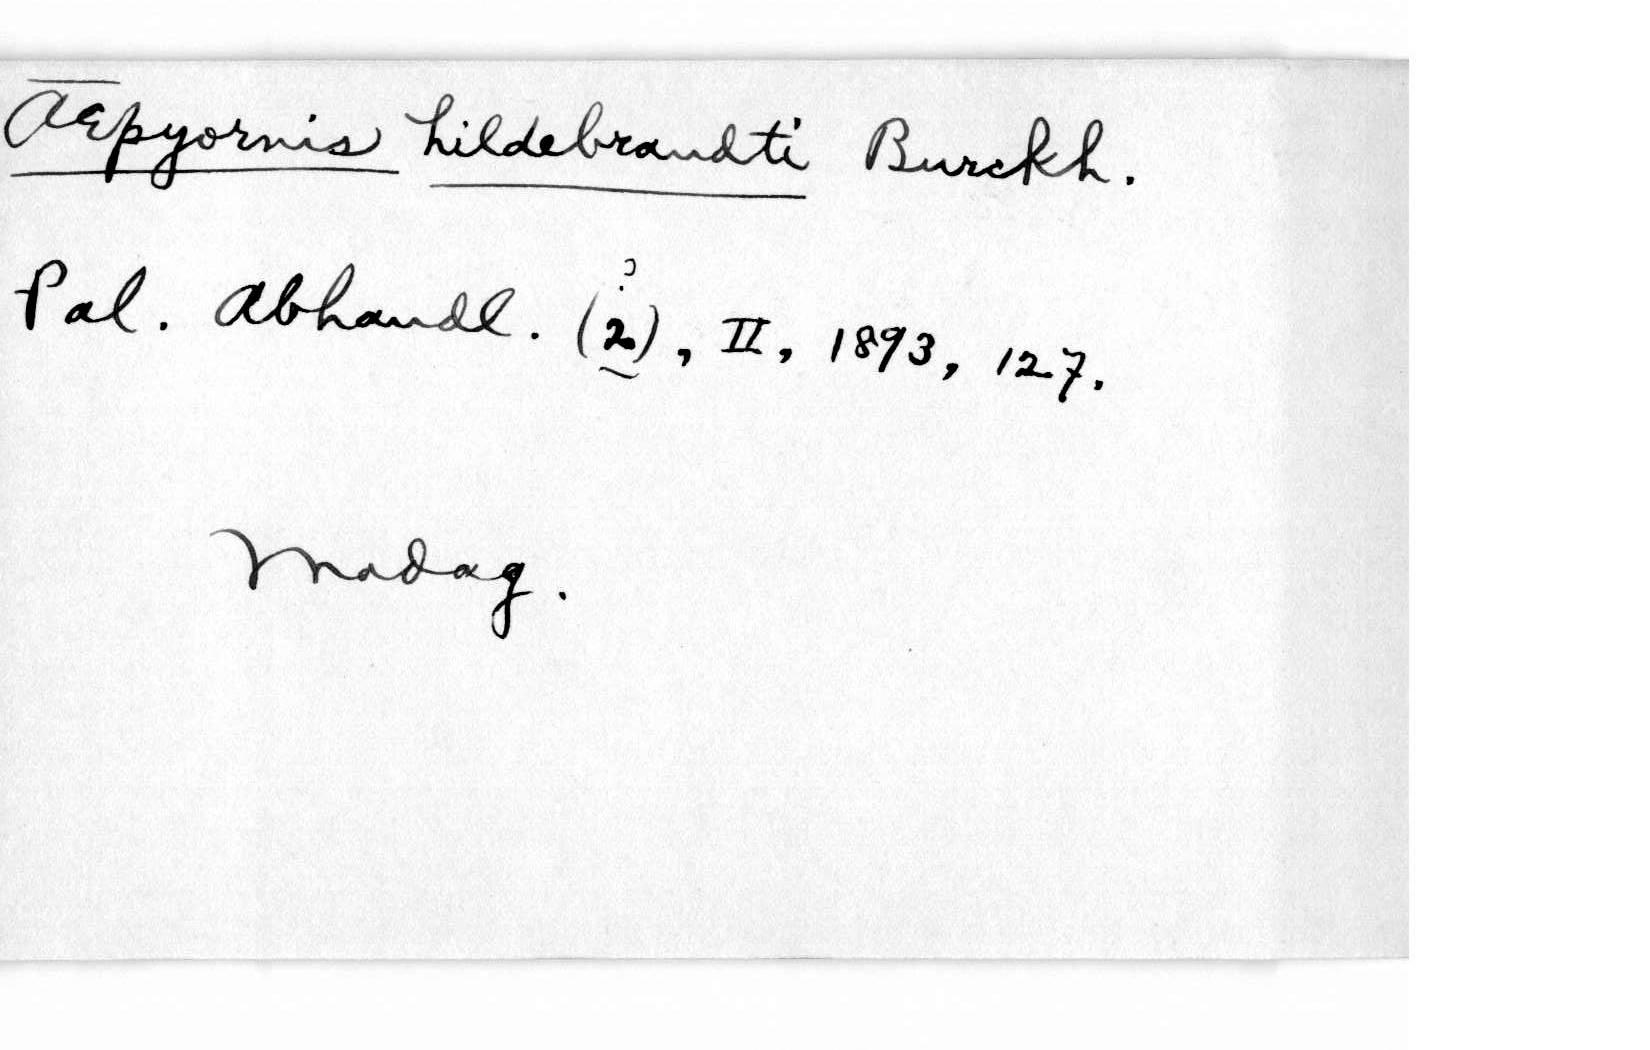 Aepyornis hildebrandti Burckh.
Pal. Abhandl. (2?), II, 1893, 127.
Madag.